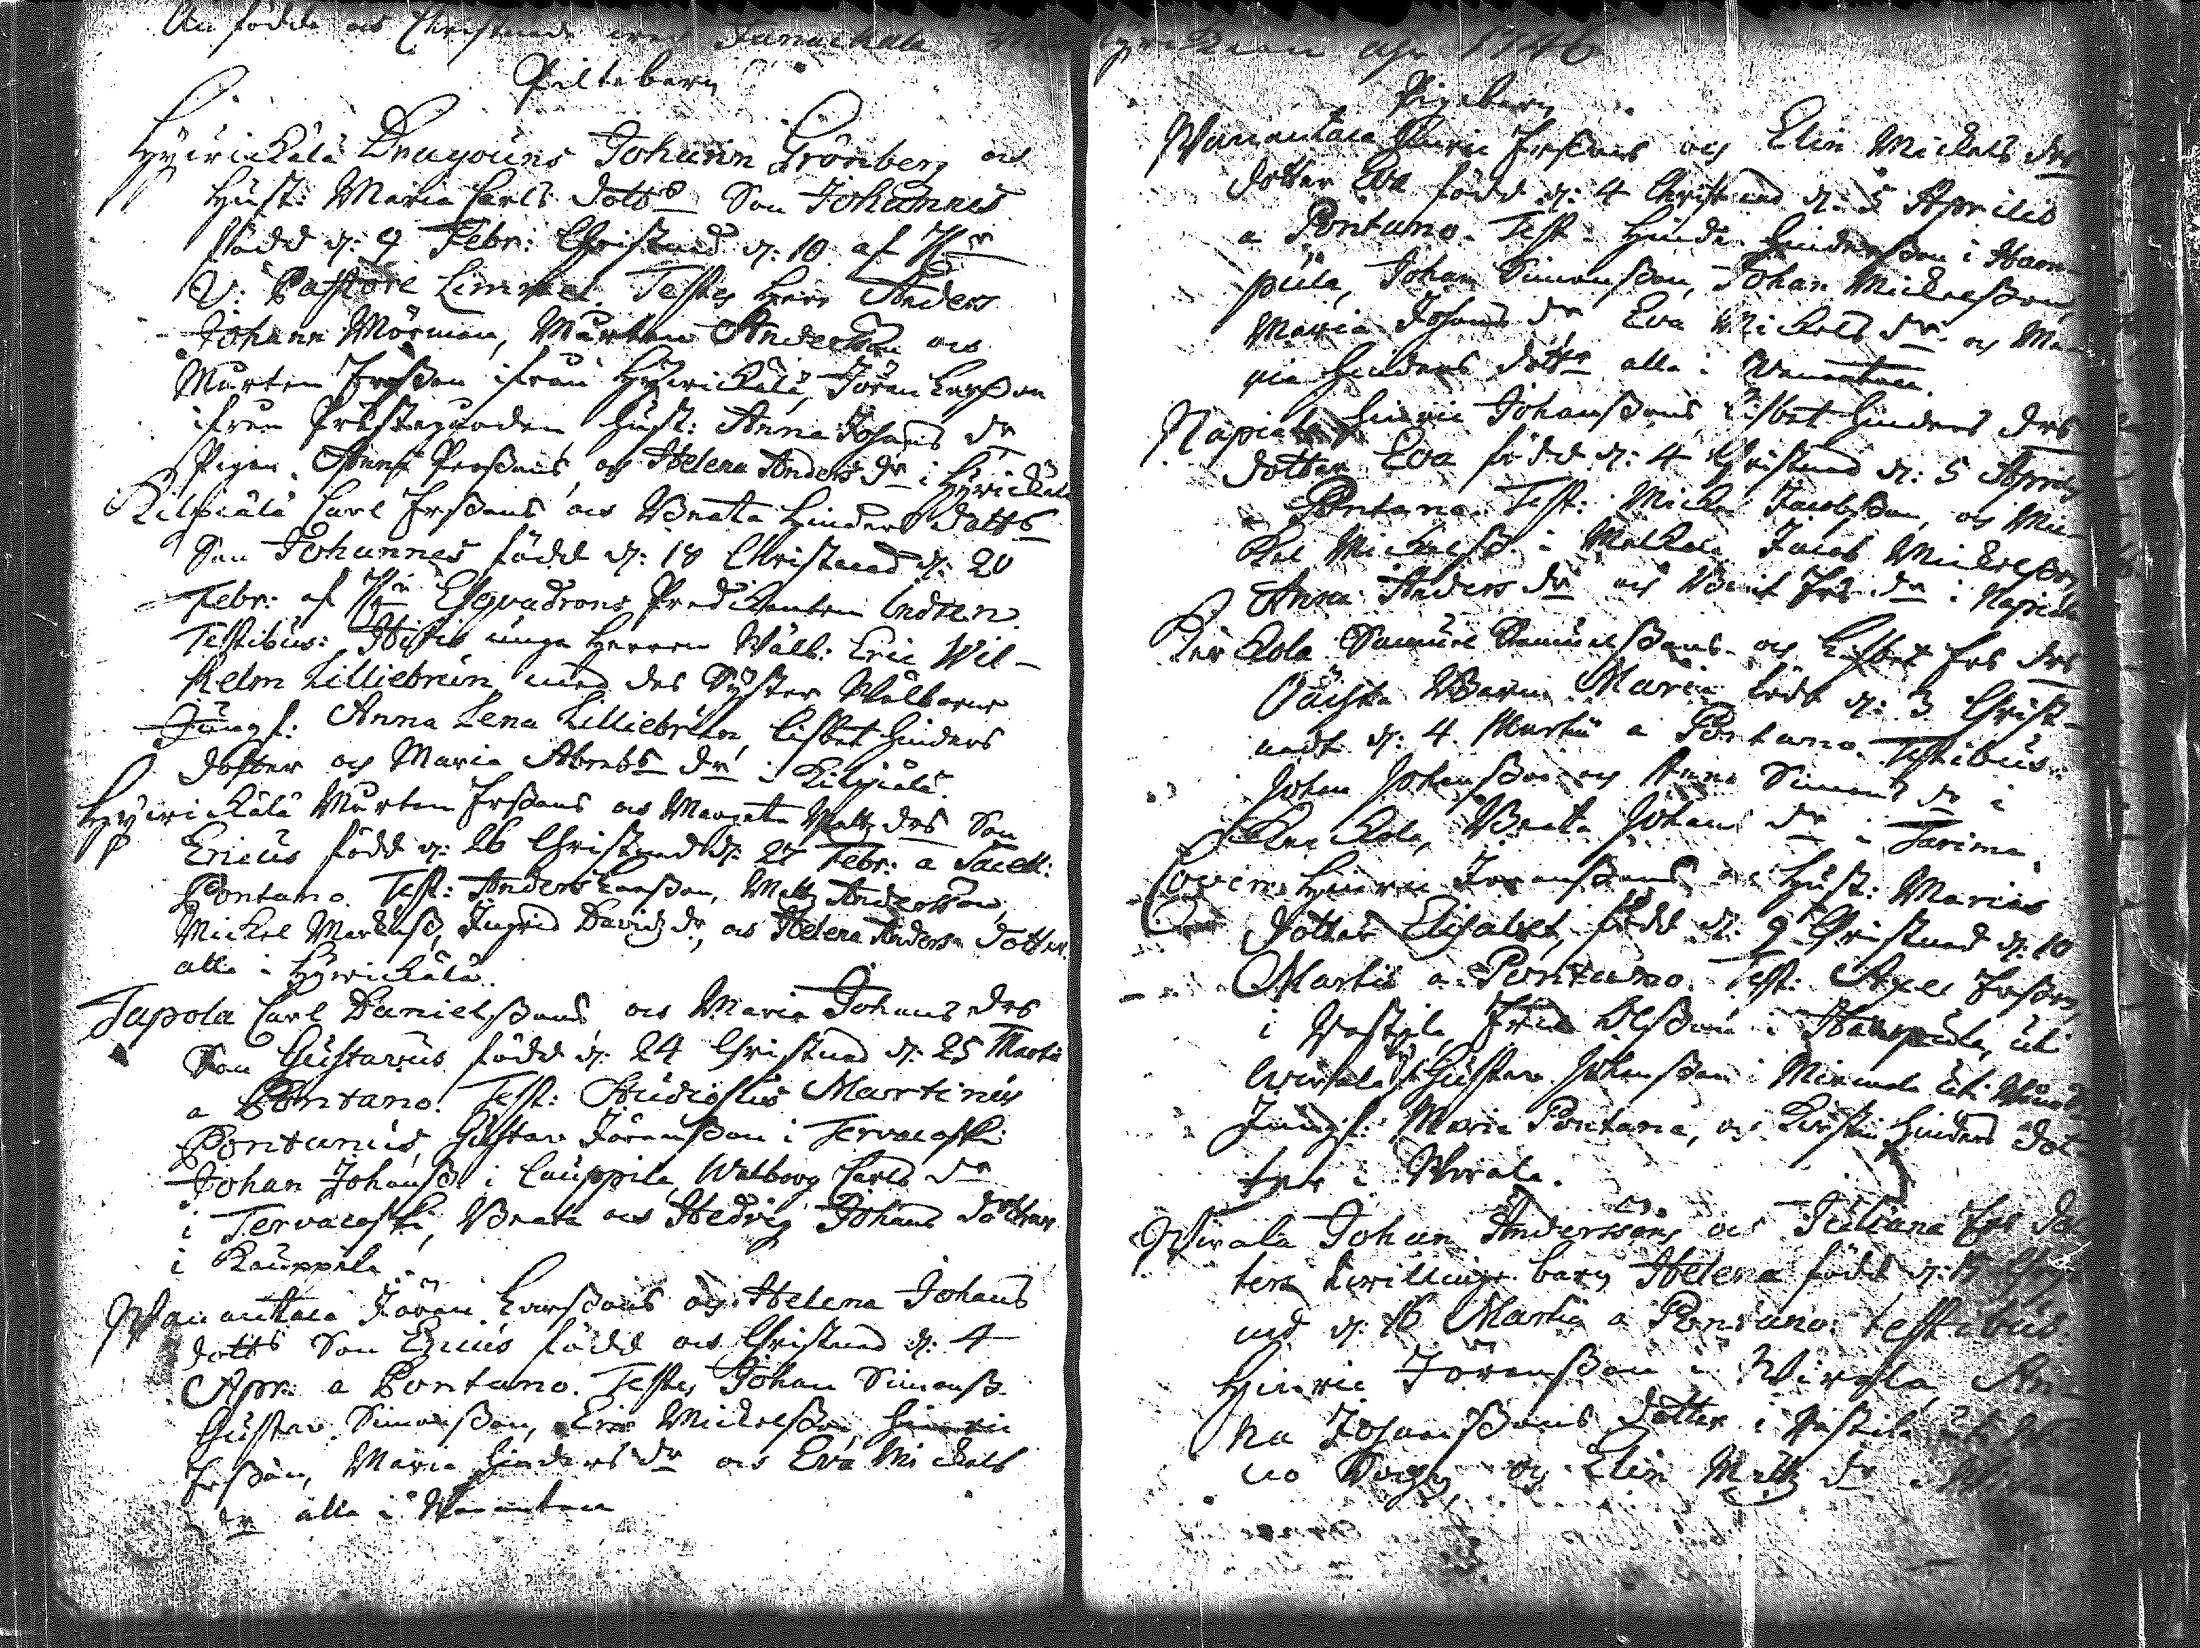 födde och Christnade wid Janackala
Piltebarn
Hywickälä Dragouns Johann Grönberg och
Hust: Maria Carls dottrs Son Johannes
född d: 9 Febr: Christnad d: 10 af Hr
V: Pastore Limnel. Testes Herr Anders
Johann Mörman, Mårten Andersson och
Mårten Ersson ifrån Hywickälä, Jören Larsson
ifrån Prästegården Hust: Anna Johans dr
Pigan Anna Persdr och Helena Anders dr i Hywickälä
Kilpiälä Carl Erssons och Beata Hinders dottrs
Son Johannes född d: 18 Christnad d: 20
Febr: af Hr Esqvadrons Predikanten Indren.
Testibus: unga Herren Wälb: Eric Wil-
helm Lilliebrun med des Syster Wälborne
Jungf: Anna Lena Lilliebrun, Lisbet Hinders
dotter och Maria Abrahs dr i Kilpiälä.
Hywickälä Mårten Erssons och Margeta Matts drs Son
Ericus född d: 26 Christnad d: 27 Febr: a Sacell:
Pontano. Test: Anders Larsson, Matts Andersson,
Mickel Markuss, Ingrid Davids dr, och Helena Anders dotter
alla i Hywickälä.
Tapola Carl Danielssons och Maria Johans drs
Son Gustavus född d: 24 Christnad d: 25 Martii
a Pontano. Test: Studiosus Martinus
Pontanus, Gustav Jöransson i Tervacoski
Johan Johanss i Cauppila, Walborg Carls dr
i Tervacoski, Beata och Hedvig Johans dötrar
i Kauppila.
Wanantaca Jören Larssons och Helena Johans
dottrs Son Ericus född och Christnad d: 4
Apr: a Pontano. Testes Johan Simonss
Gustav Simonsson, Eric Mickelsson, Hinric
Ersson, Maria Hinders dr och Eva Mickels
dr alla i Wanantaca
1746
Pigebarn
Wanantaca Erssons och Elin Mickels drs
dotter Eva född d: 4 Christnad d: 5 Aprilis
a Pontano. Test: Hindr Hindersson i Haon-
pula, Johan Simonsson, Johan Mickelsson,
Maria Johans dr Eva Mickels dr och Ma-
ria Hinders dottr alla i Wanantaca.
Napiala Hinric Johanssons Lisbet Hinders drs
dotter Eva född d: 4 Christnad d: 5 Aprilis
a Pontano. Test: Mickel Jacobsson, och Mic-
kel Mickelss i Melkala Jacob Mickelsson
Anna Anders dr och Ers dr i Napiala
Kerckola Samuel Samuelssons och Lisbet Ers drs
Oächta Barn Maria född d: 3 Christ-
nadt d: 4 Martii a Pontano. Testibus:
Johan Johansson och Anna Simons dr i
Kerckola, Beata Johans dr i Tarima.
Hinric Joransons och Hust: Marias
dotter Elisabet, född d: 9 Christnad d: 10
Martii a Pontano. Test: Axel Ersson,
i Eric Olsson i Haonpula, uti
Gustav Johansson i uti
Jungf: Maria Pontana, och Kirstin Hinders dot-
ter i Wirala.
Wirala Johan Anderssons och Juliana Ers dot-
ters twillinge barn Helena född d: 15 Christ-
nad d: 16 Martii a Pontano: testibus:
Hinric Joransson i Wirala, An-
na Johanssons dotter i
och Elin Matts dr